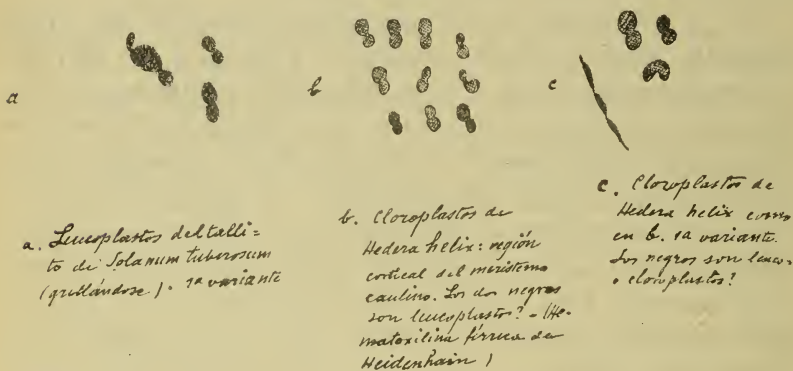 a
b
c
a. Leucoplastos del talli=
to de Solanum tuberosum
(grillándose). 1a variante
b. Cloroplastos de
Hedera helix: región
cortical del meristemo
caulino. Los dos negros
son leucoplastos? - (He-
matoxilina férrica de
Heidenhain)
c. Cloroplastos de
Hedera helix como
en b. 1a variante.
Los negros son leuco-
o cloroplastos?